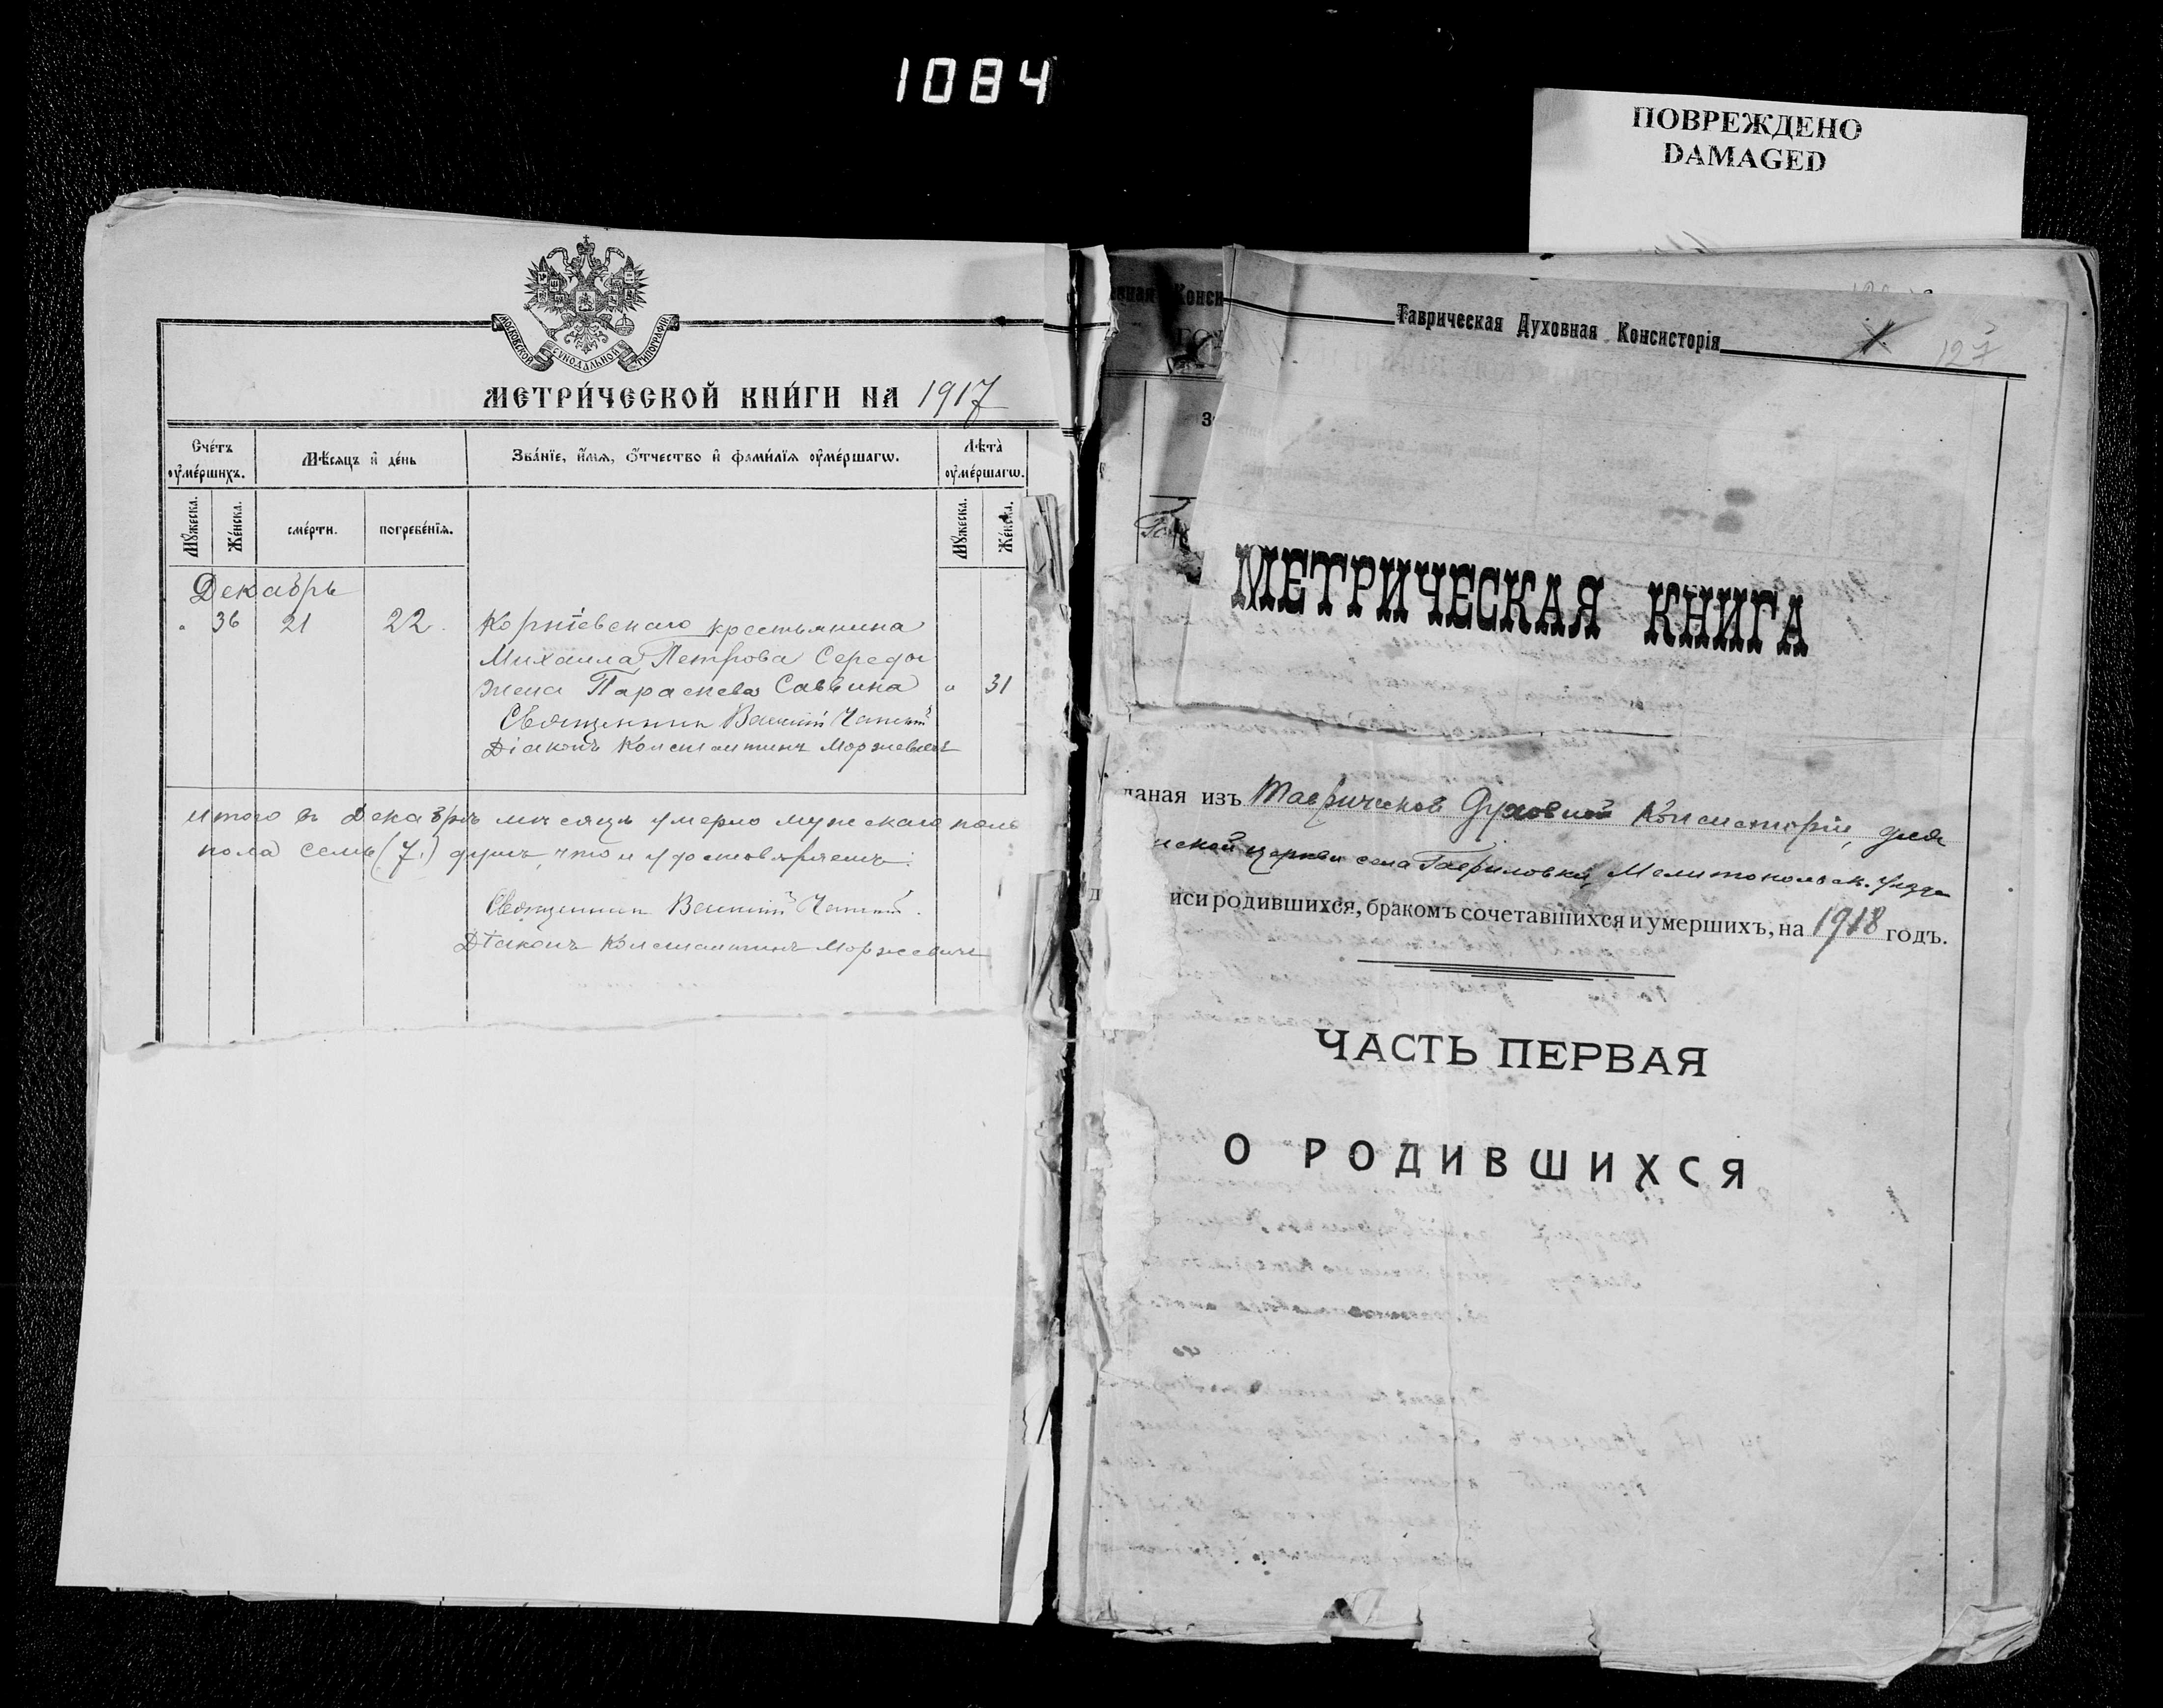 1084
ПОВРЕЖДЕНО
DAMAGED
МОСКОВСКОЙ СУНОДАЛЬНОЙ ТИПОГРАФІИ
МЕТРИ́ЧЕСКОЙ КНИ́ГИ НА 1917
Сче́тъ оумéршихъ.
Мѣ́сяцъ и де́нь
Зва́нїе, и́мя, о́тчество и фами́лїя оуме́ршагѡ.
Лѣ́та оуме́ршагѡ.
Мꙋжеска.
Же́нска.
сме́рти.
погребе́нїя.
Мꙋжеска.
Же́нска.
Декабрь
" 36 21 22 Корніевскаго крестьянина
Михаила Петрова Середы
жена Параскева Саввина " 31
Священникъ Василій
Діаконъ Константинъ Моржевичъ
Итого въ Декабрѣ мѣсяцѣ умерло мужескаго
пола семь (7) душъ, что и удостовѣряемъ:
Священникъ Василій
Діаконъ Константинъ Моржевичъ
вная Конси
Таврическая Духовная Консисторія
127
МЕТРИЧЕСКАЯ КНИГА
даная изъ Таврической Духовной Консисторіи, для
ской церкви села Гавриловки, Мелитопольск. уѣзда
иси родившихся, бракомъ сочетавшихся и умершихъ, на 1918 годъ.
ЧАСТЬ ПЕРВАЯ
О РОДИВШИХСЯ